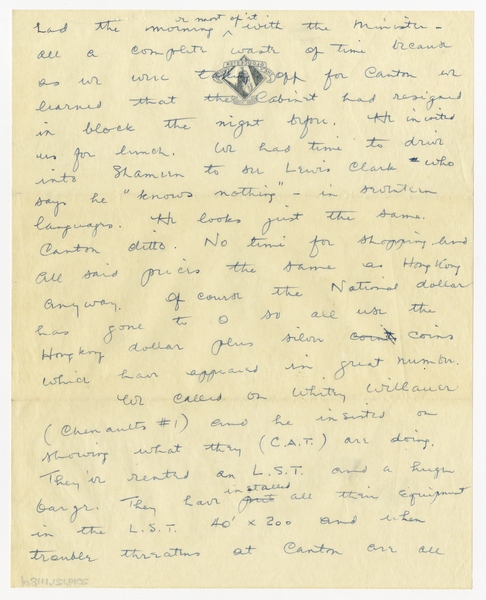 or most of it
had the morning with the Minister -
all a complete waste of time because
as we were taking off for Canton we
learned that the Cabinet had resigned
in block the night before. He invited
us for lunch. We had time to drive
into Shameen to see Lewis Clark - who
says he "knows nothing" - in seventeen
languages. He looks just the same.
Canton ditto. No time for shopping and
all said prices the same as Hong Kong
anyway. Of course the National dollar
has gone to 0 so all use the
Hongkong dollar plus silver coins
which have appeared in great number.
We called on Whitey Willauer
(Chenaults #1) and he insisted on
showing what they (C.A.T.) are doing.
They've rented an L.S.T. and a huge
barge. They have installed all their equipment
in the L.S.T. 40' x 200 and when
trouble threatens at Canton are all